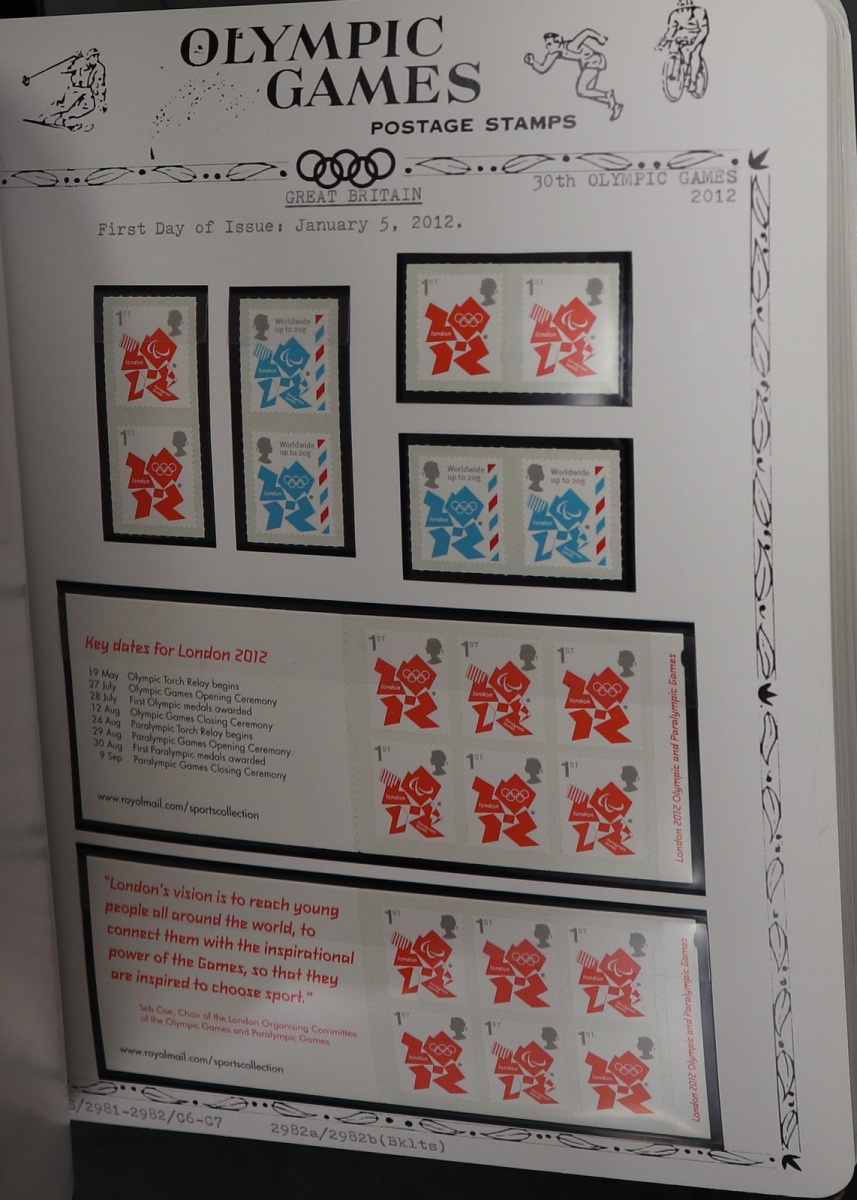 OLYMPIC
GAMES
POSTAGE STAMPS
GREAT BRITAIN
30th OLYMPIC GAMES
2012
First Day of Issue: January 5, 2012.
1ST
london
1ST
london
Worldwide
up to 20g
london
Worldwide
up to 20g
london
1ST
london
1ST
london
Worldwide
up to 20g
london
Worldwide
up to 20g
london
Key dates for London 2012
19 May Olympic Torch Relay begins
27 July Olympic Games Opening Ceremony
28 July First Olympic medals awarded
12 Aug Olympic Games Closing Ceremony
24 Aug Paralympic Torch Relay begins
29 Aug Paralympic Games Opening Ceremony
30 Aug First Paralympic medals awarded
9 Sep Paralympic Games Closing Ceremony
www.royalmail.com/sportscollection
1ST
london
1ST
london
1ST
london
1ST
london
1ST
london
1ST
london
London 2012 Olympic and Paralympic Games
"London's vision is to reach young
people all around the world, to
connect them with the inspirational
power of the Games, so that they
are inspired to choose sport."
Seb Coe, Chair of the London Organising Committee
of the Olympic Games and Paralympic Games
www.royalmail.com/sportscollection
1ST
london
1ST
london
1ST
london
1ST
london
1ST
london
1ST
london
London 2012 Olympic and Paralympic Games
/2981-2982/C6-C7
2982a/2982b(Bklts)